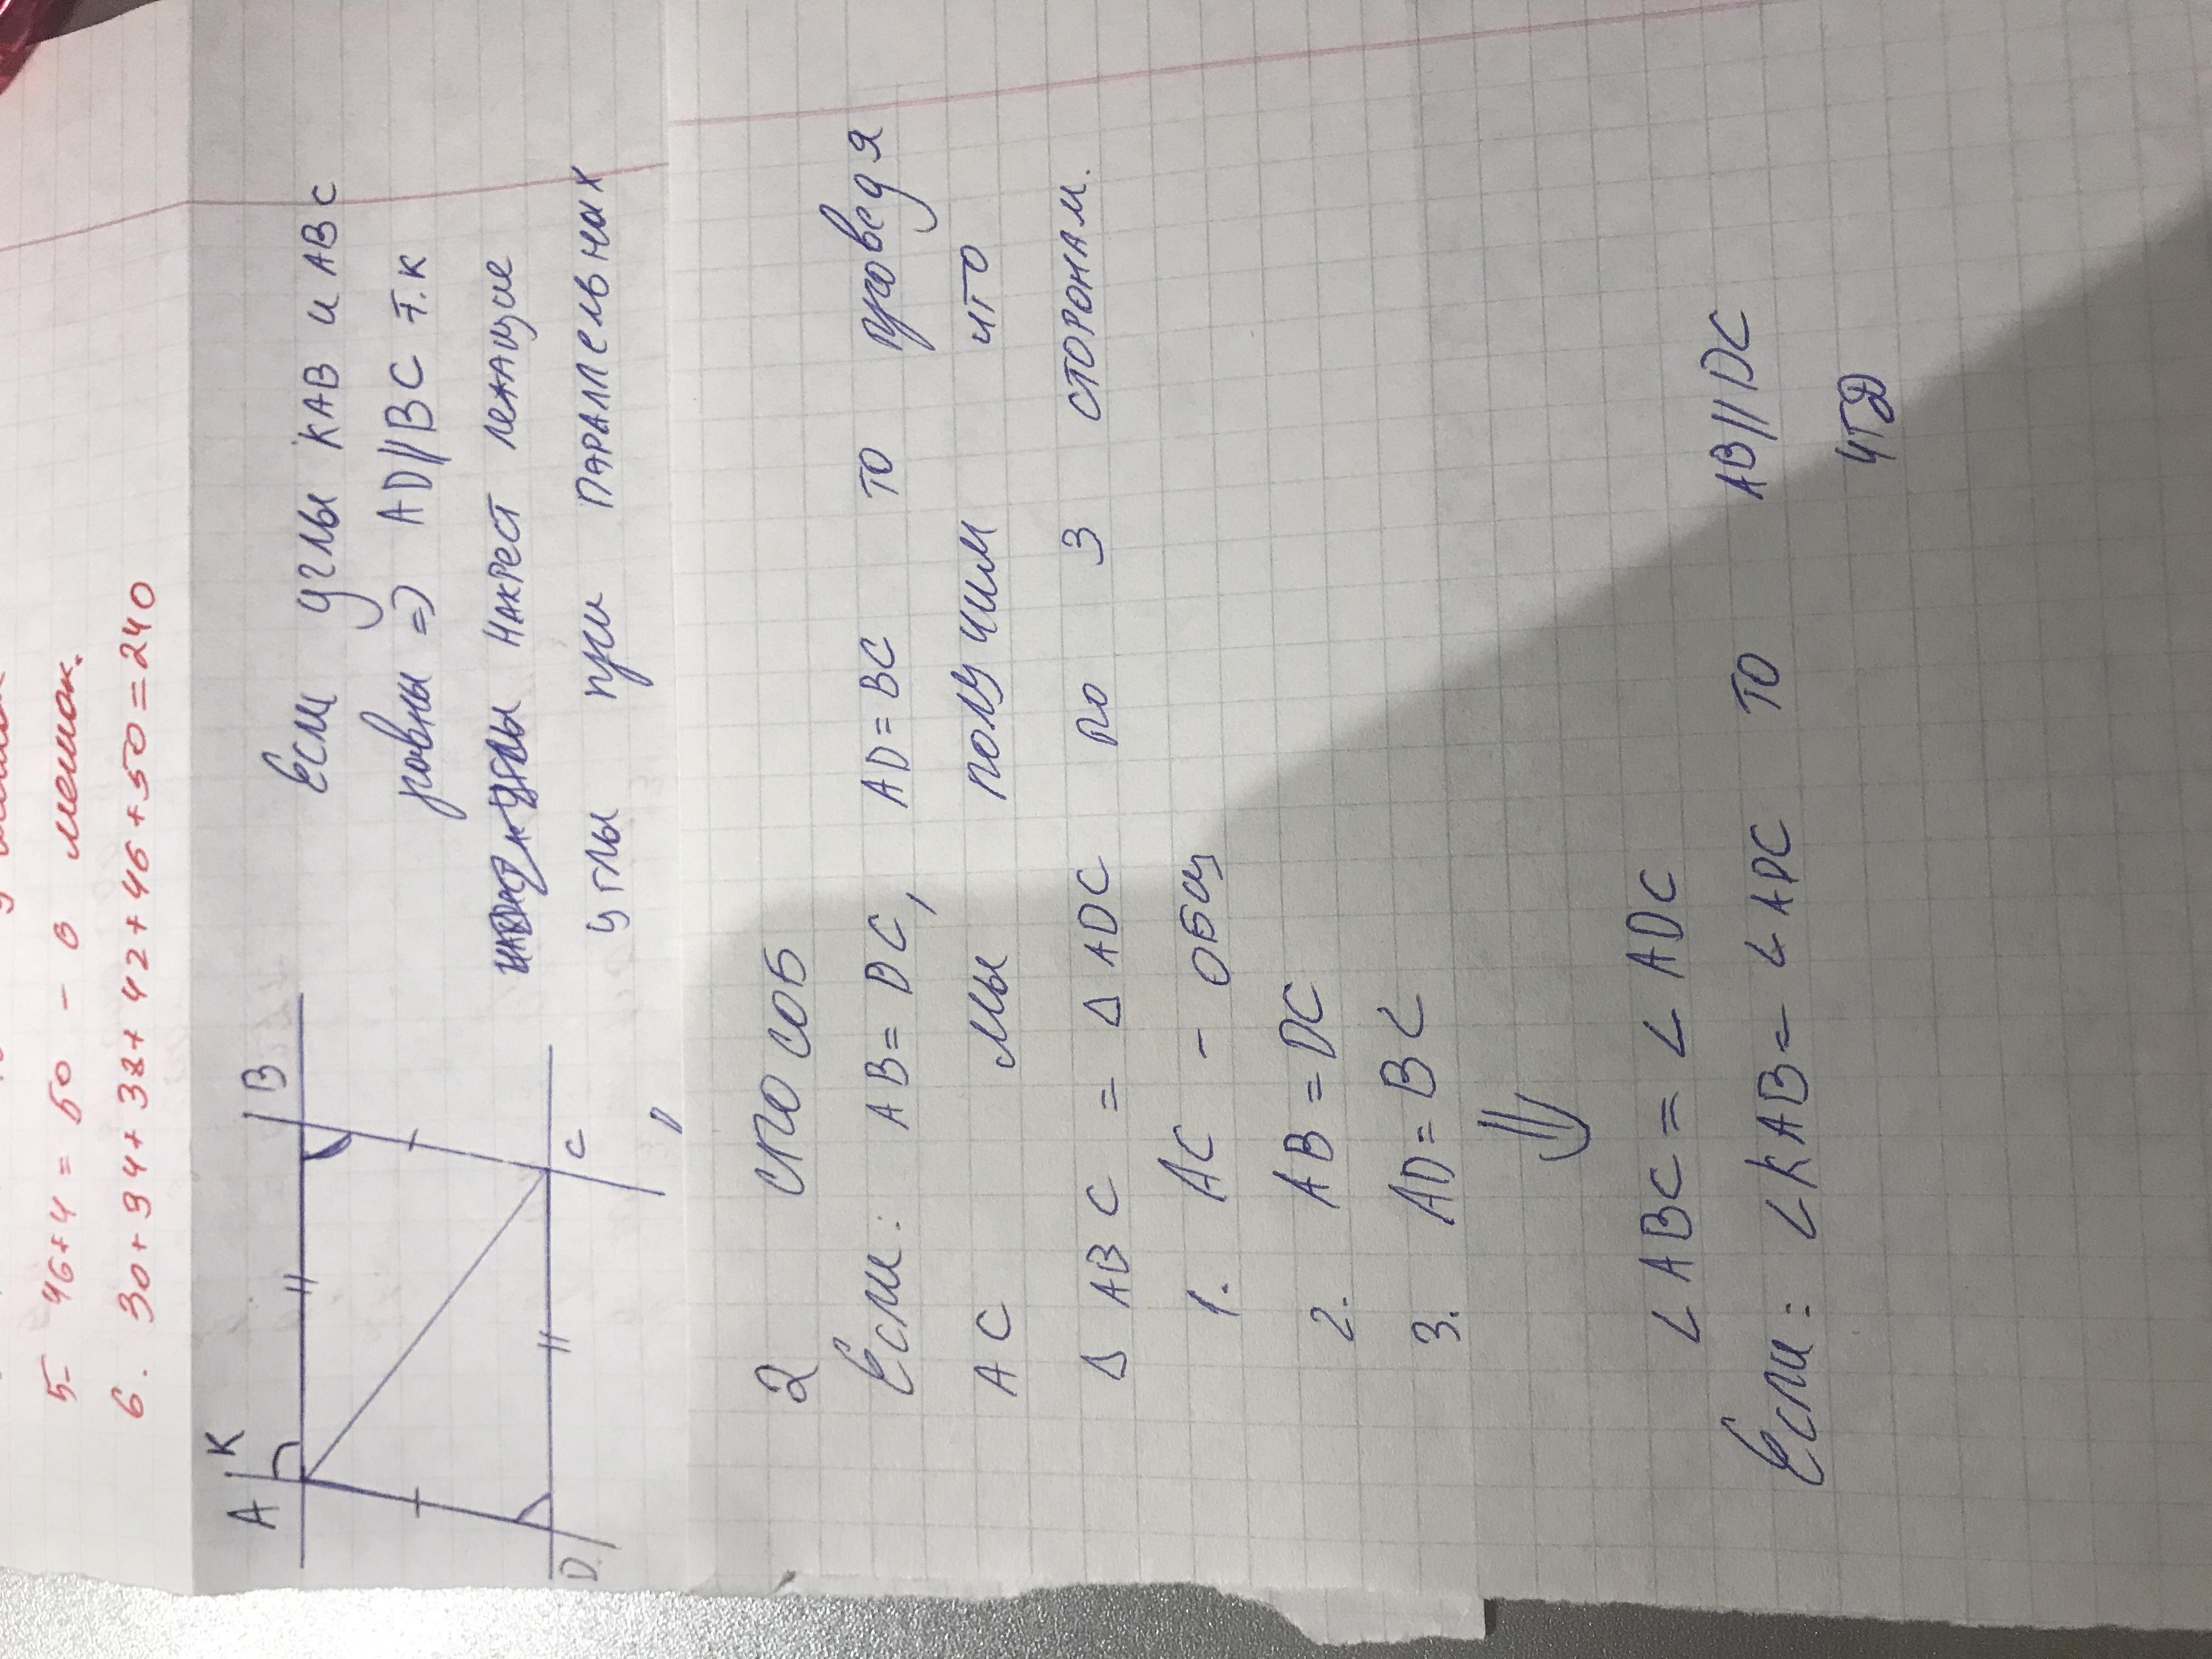 5 46+4=50 - в мешок.
6. 30+34+38+42+46+50=240
A K B
D C
Если углы КАВ и АВС
равны => AD//BC т.к
накрест лежащие
углы при параллельных
2 способ
Если: AB=DC, AD=BC то проведя
AC мы получим что
Δ ABC = Δ ADC по 3 сторонам.
1. AC - общ
2. AB=DC
3. AD=BC
∠ABC=∠ADC
Если: ∠KAB=∠ADC то AB//DC
чтд